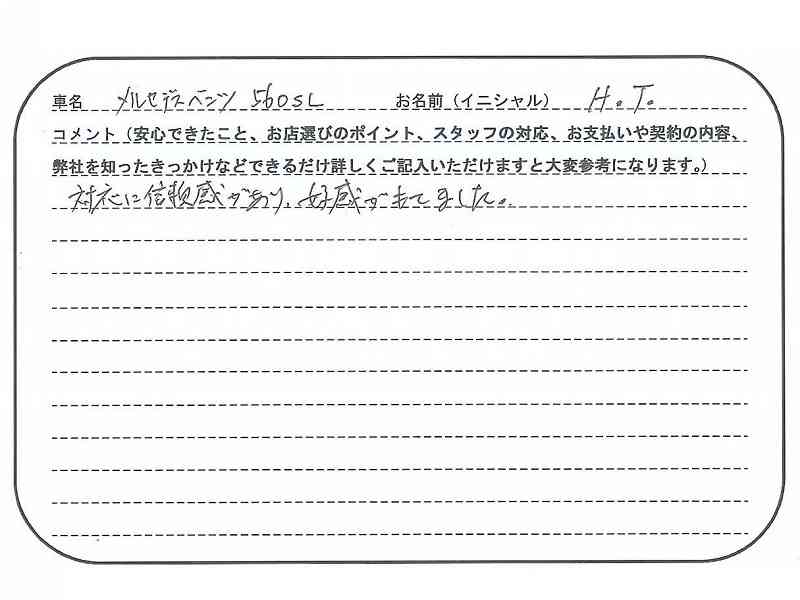 車名 メルセデスベンツ 560SL お名前（イニシャル） H.T.
コメント（安心できたこと、お店選びのポイント、スタッフの対応、お支払いや契約の内容、
弊社を知ったきっかけなどできるだけ詳しくご記入いただけますと大変参考になります。）
対応に信頼感があり、好感がもてました。